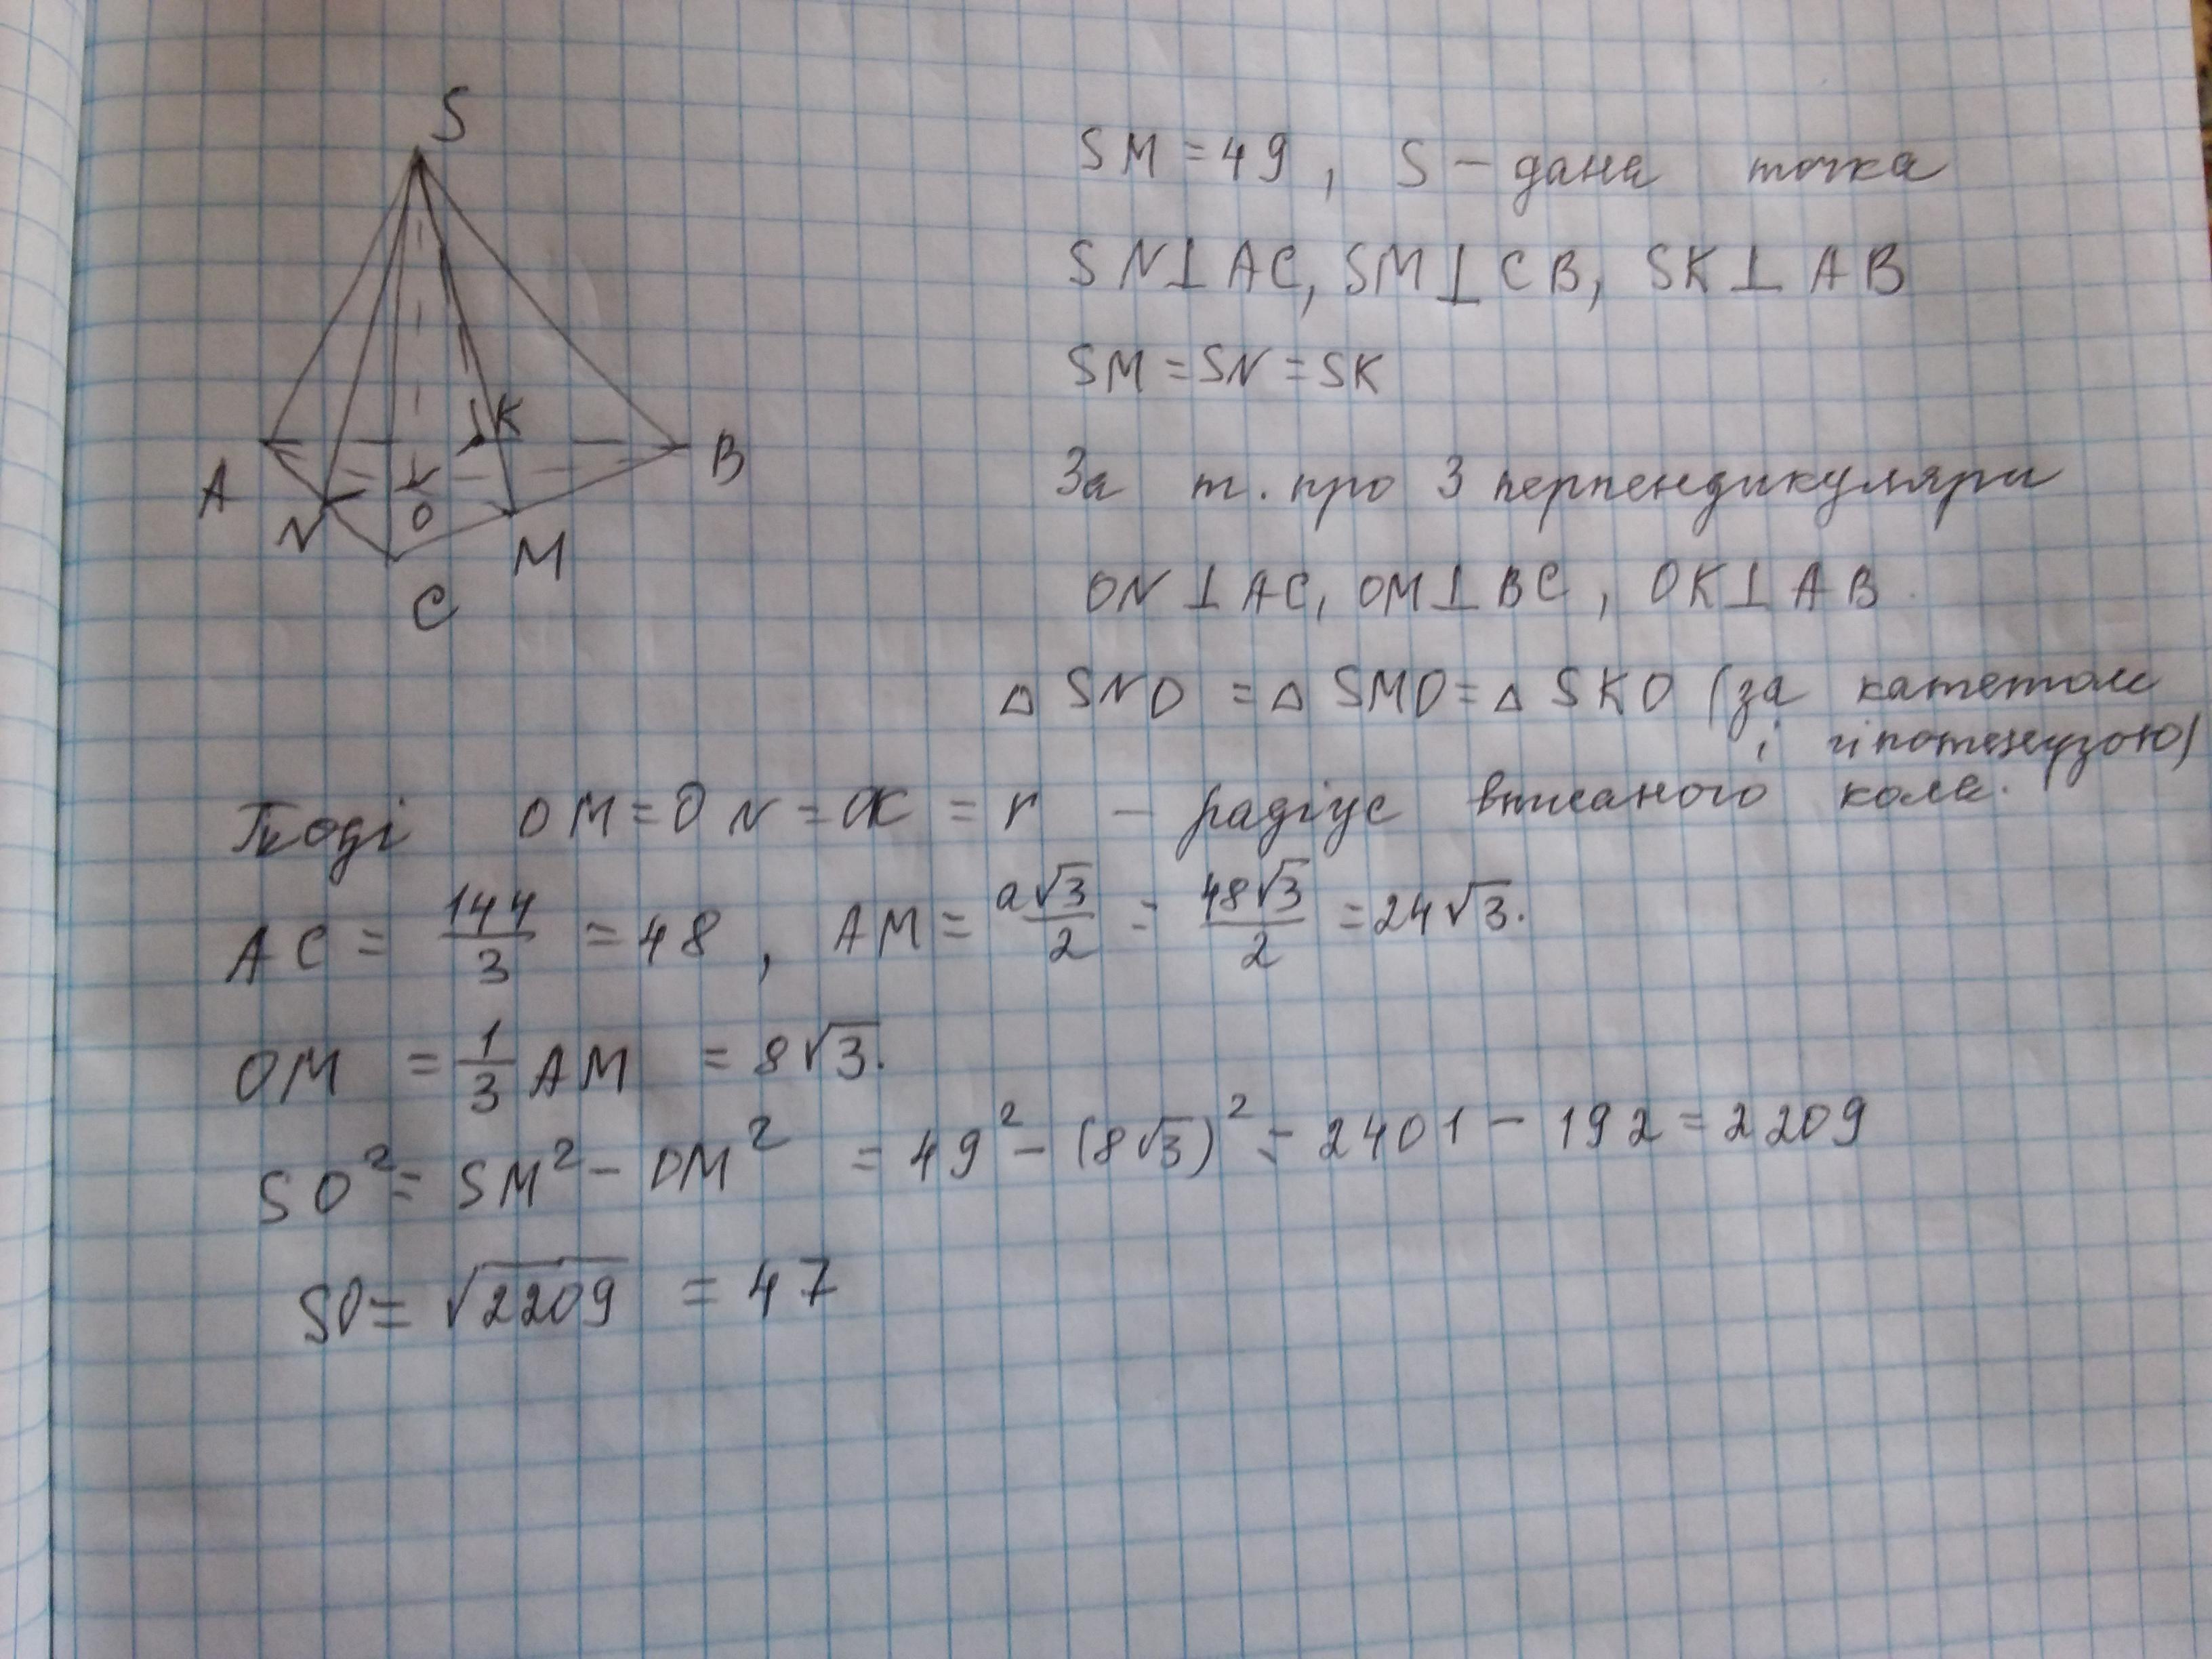 S
A
N
O
K
B
M
C
SM = 49, S – дана точка
SN⊥AC, SM⊥CB, SK⊥AB
SM = SN = SK
За т. про 3 перпендикуляри
ON⊥AC, OM⊥BC, OK⊥AB
△SNO = △SMO = △SKO (за катетом
і гіпотенузою)
Тоді OM = ON = OK = r – радіус вписаного кола.
AC = 144/3 = 48, AM = a√3/2 = 48√3/2 = 24√3.
OM = 1/3 AM = 8√3.
SO² = SM² – OM² = 49² – (8√3)² = 2401 – 192 = 2209
SO = √2209 = 47